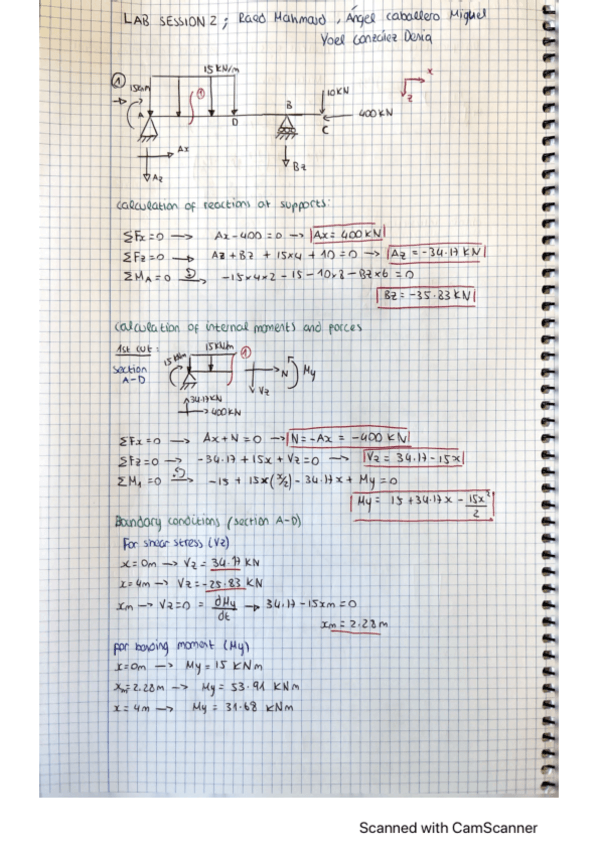 LAB SESSION 2; Raed Mahmoud, Ángel Caballero Miguel
Yoel González Denia
1
15 kN/m
15kNm
1
10KN
x
z
A
D
B
C
400 KN
Ax
Az
Bz
Calculation of reactions at supports:
ΣFx=0 → Ax-400=0 → Ax=400KN
ΣFz=0 → Az+Bz+15x4+10=0 → Az=-34.17 KN
ΣMA=0 → -15x4x2-15-10x8-Bzx6=0
Bz=-35.83KN
Calculation of internal moments and forces
1st cut:
section
A-D
15 kNm
15kN/m
1
N
My
Vz
34.17KN
400KN
ΣFx=0 → Ax+N=0 → N=-Ax=-400KN
ΣFz=0 → -34.17+15x+Vz=0 → Vz=34.17-15x
ΣM1=0 → -15+15x(x/2)-34.17x+My=0
My=15+34.17x-15x²/2
Boundary conditions (section A-D)
For shear stress (Vz)
x=0m → Vz=34.17 KN
x=4m → Vz=-25.83 KN
xm → Vz=0=dMy/dt → 34.17-15xm=0
xm=2.28m
For bending moment (My)
x=0m → My=15 KNm
xm=2.28m → My=53.91 KNm
x=4m → My=31.68 KNm
Scanned with CamScanner